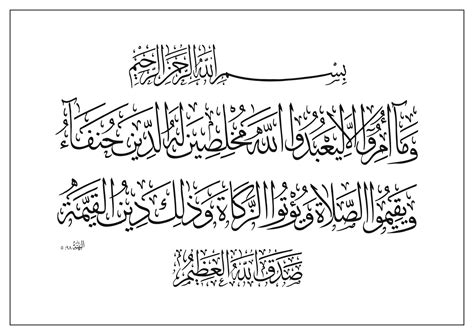 بِسْمِ اللهِ الرَّحْمَنِ الرَّحِيْمِ
وَمَآ أُمِرُوٓا إِلَّا لِيَعْبُدُوا اللهَ مُخْلِصِينَ لَهُ الدِّينَ حُنَفَآءَ
وَيُقِيمُوا الصَّلَاةَ وَيُؤْتُوا الزَّكَاةَ وَذَلِكَ دِينُ الْقَيِّمَةِ
البينة ٥/٩٨
صَدَقَ اللهُ الْعَظِيمُ